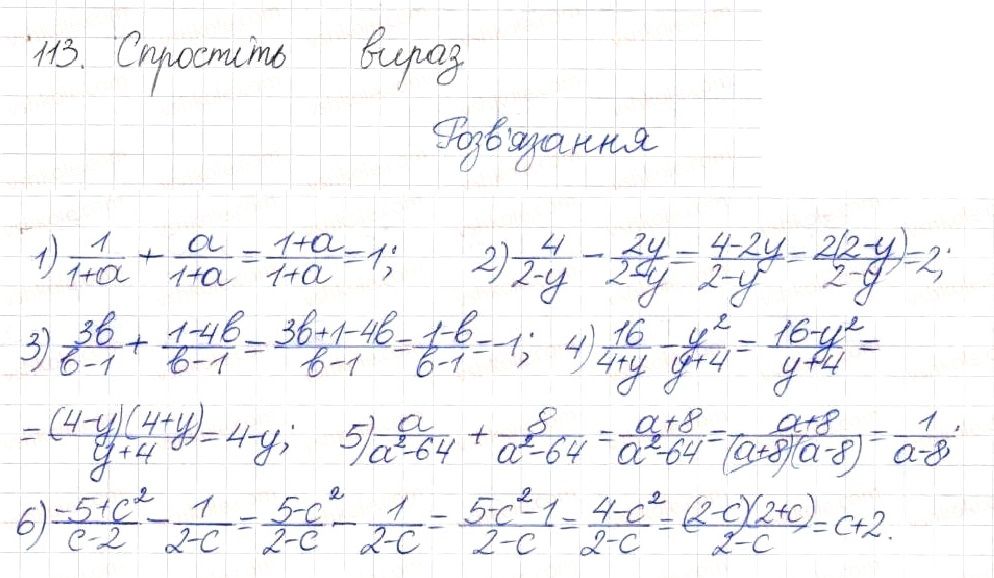 113. Спростіть вираз
Розв'язання
1) 1/(1+a) + a/(1+a) = (1+a)/(1+a) = 1; 2) 4/(2-y) - 2y/(2-y) = (4-2y)/(2-y) = 2(2-y)/(2-y) = 2;
3) 3b/(b-1) + (1-4b)/(b-1) = (3b+1-4b)/(b-1) = (1-b)/(b-1) = -1; 4) 16/(4+y) - y²/(y+4) = (16-y²)/(y+4) =
= (4-y)(4+y)/(y+4) = 4-y; 5) a/(a²-64) + 8/(a²-64) = (a+8)/(a²-64) = (a+8)/((a+8)(a-8)) = 1/(a-8);
6) (-5+c²)/(c-2) - 1/(2-c) = (5-c²)/(2-c) - 1/(2-c) = (5-c²-1)/(2-c) = (4-c²)/(2-c) = (2-c)(2+c)/(2-c) = c+2.